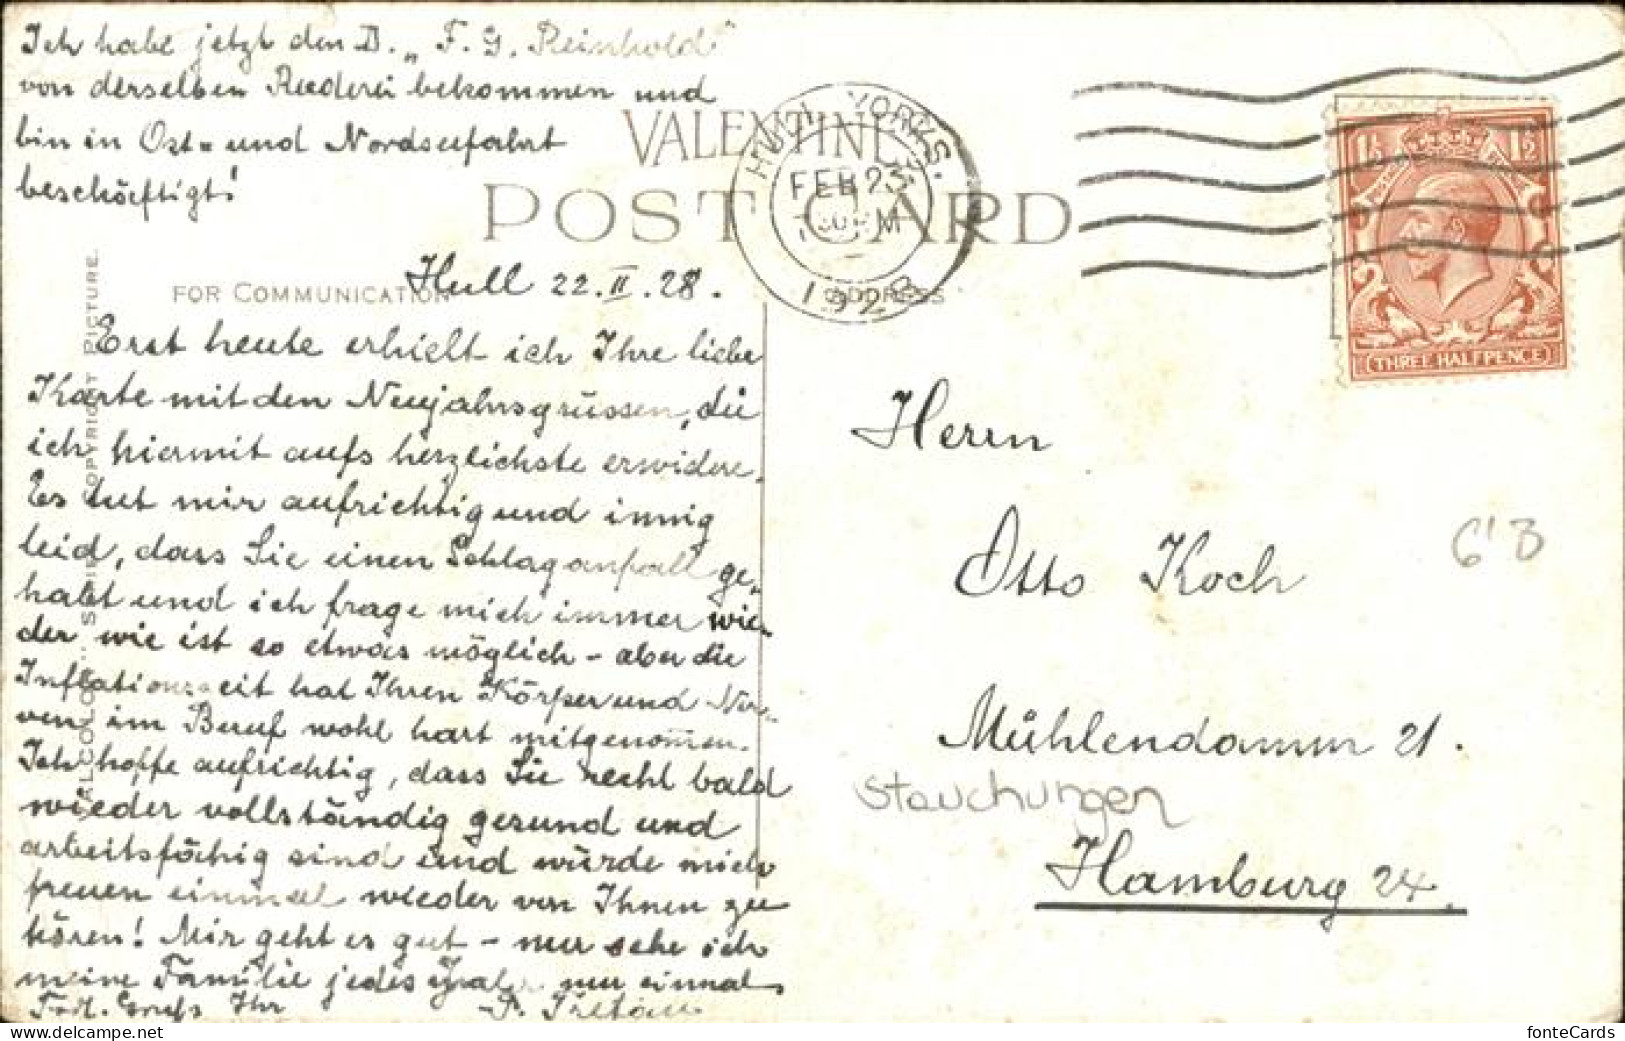 Ich habe jetzt den D. „F. G. Reinhold"
von derselben Reederei bekommen und
bin in Ost= und Nordseefahrt
beschäftigt!
VALENTINE'S
POST CARD
HULL YORKS.
FEB 23
1928
THREE HALFPENCE
FOR COMMUNICATION
ADDRESS
COPYRIGHT PICTURE.
Hull 22.II.28.
Erst heute erhielt ich Ihre liebe
Karte mit den Neujahrsgrüssen, die
ich hiermit aufs herzlichste erwidere.
Es tut mir aufrichtig und innig
leid, dass Sie einen Schlaganfall ge„
habt und ich frage mich immer wie„
der wie ist so etwas möglich – aber die
Inflationszeit hat Ihren Körper und Ner„
ven im Beruf wohl hart mitgenom̄en.
Ich hoffe aufrichtig, dass Sie recht bald
wieder vollständig gesund und
arbeitsfähig sind und würde mich
freuen einmal wieder von Ihnen zu
hören! Mir geht es gut – nur sehe ich
meine Familie jedes Jahr nur einmal
Frdl. Gruß Ihr
Herrn
Otto Koch
Mühlendamm 21.
Stauchungen
Hamburg 24.
6'B
fonteCards